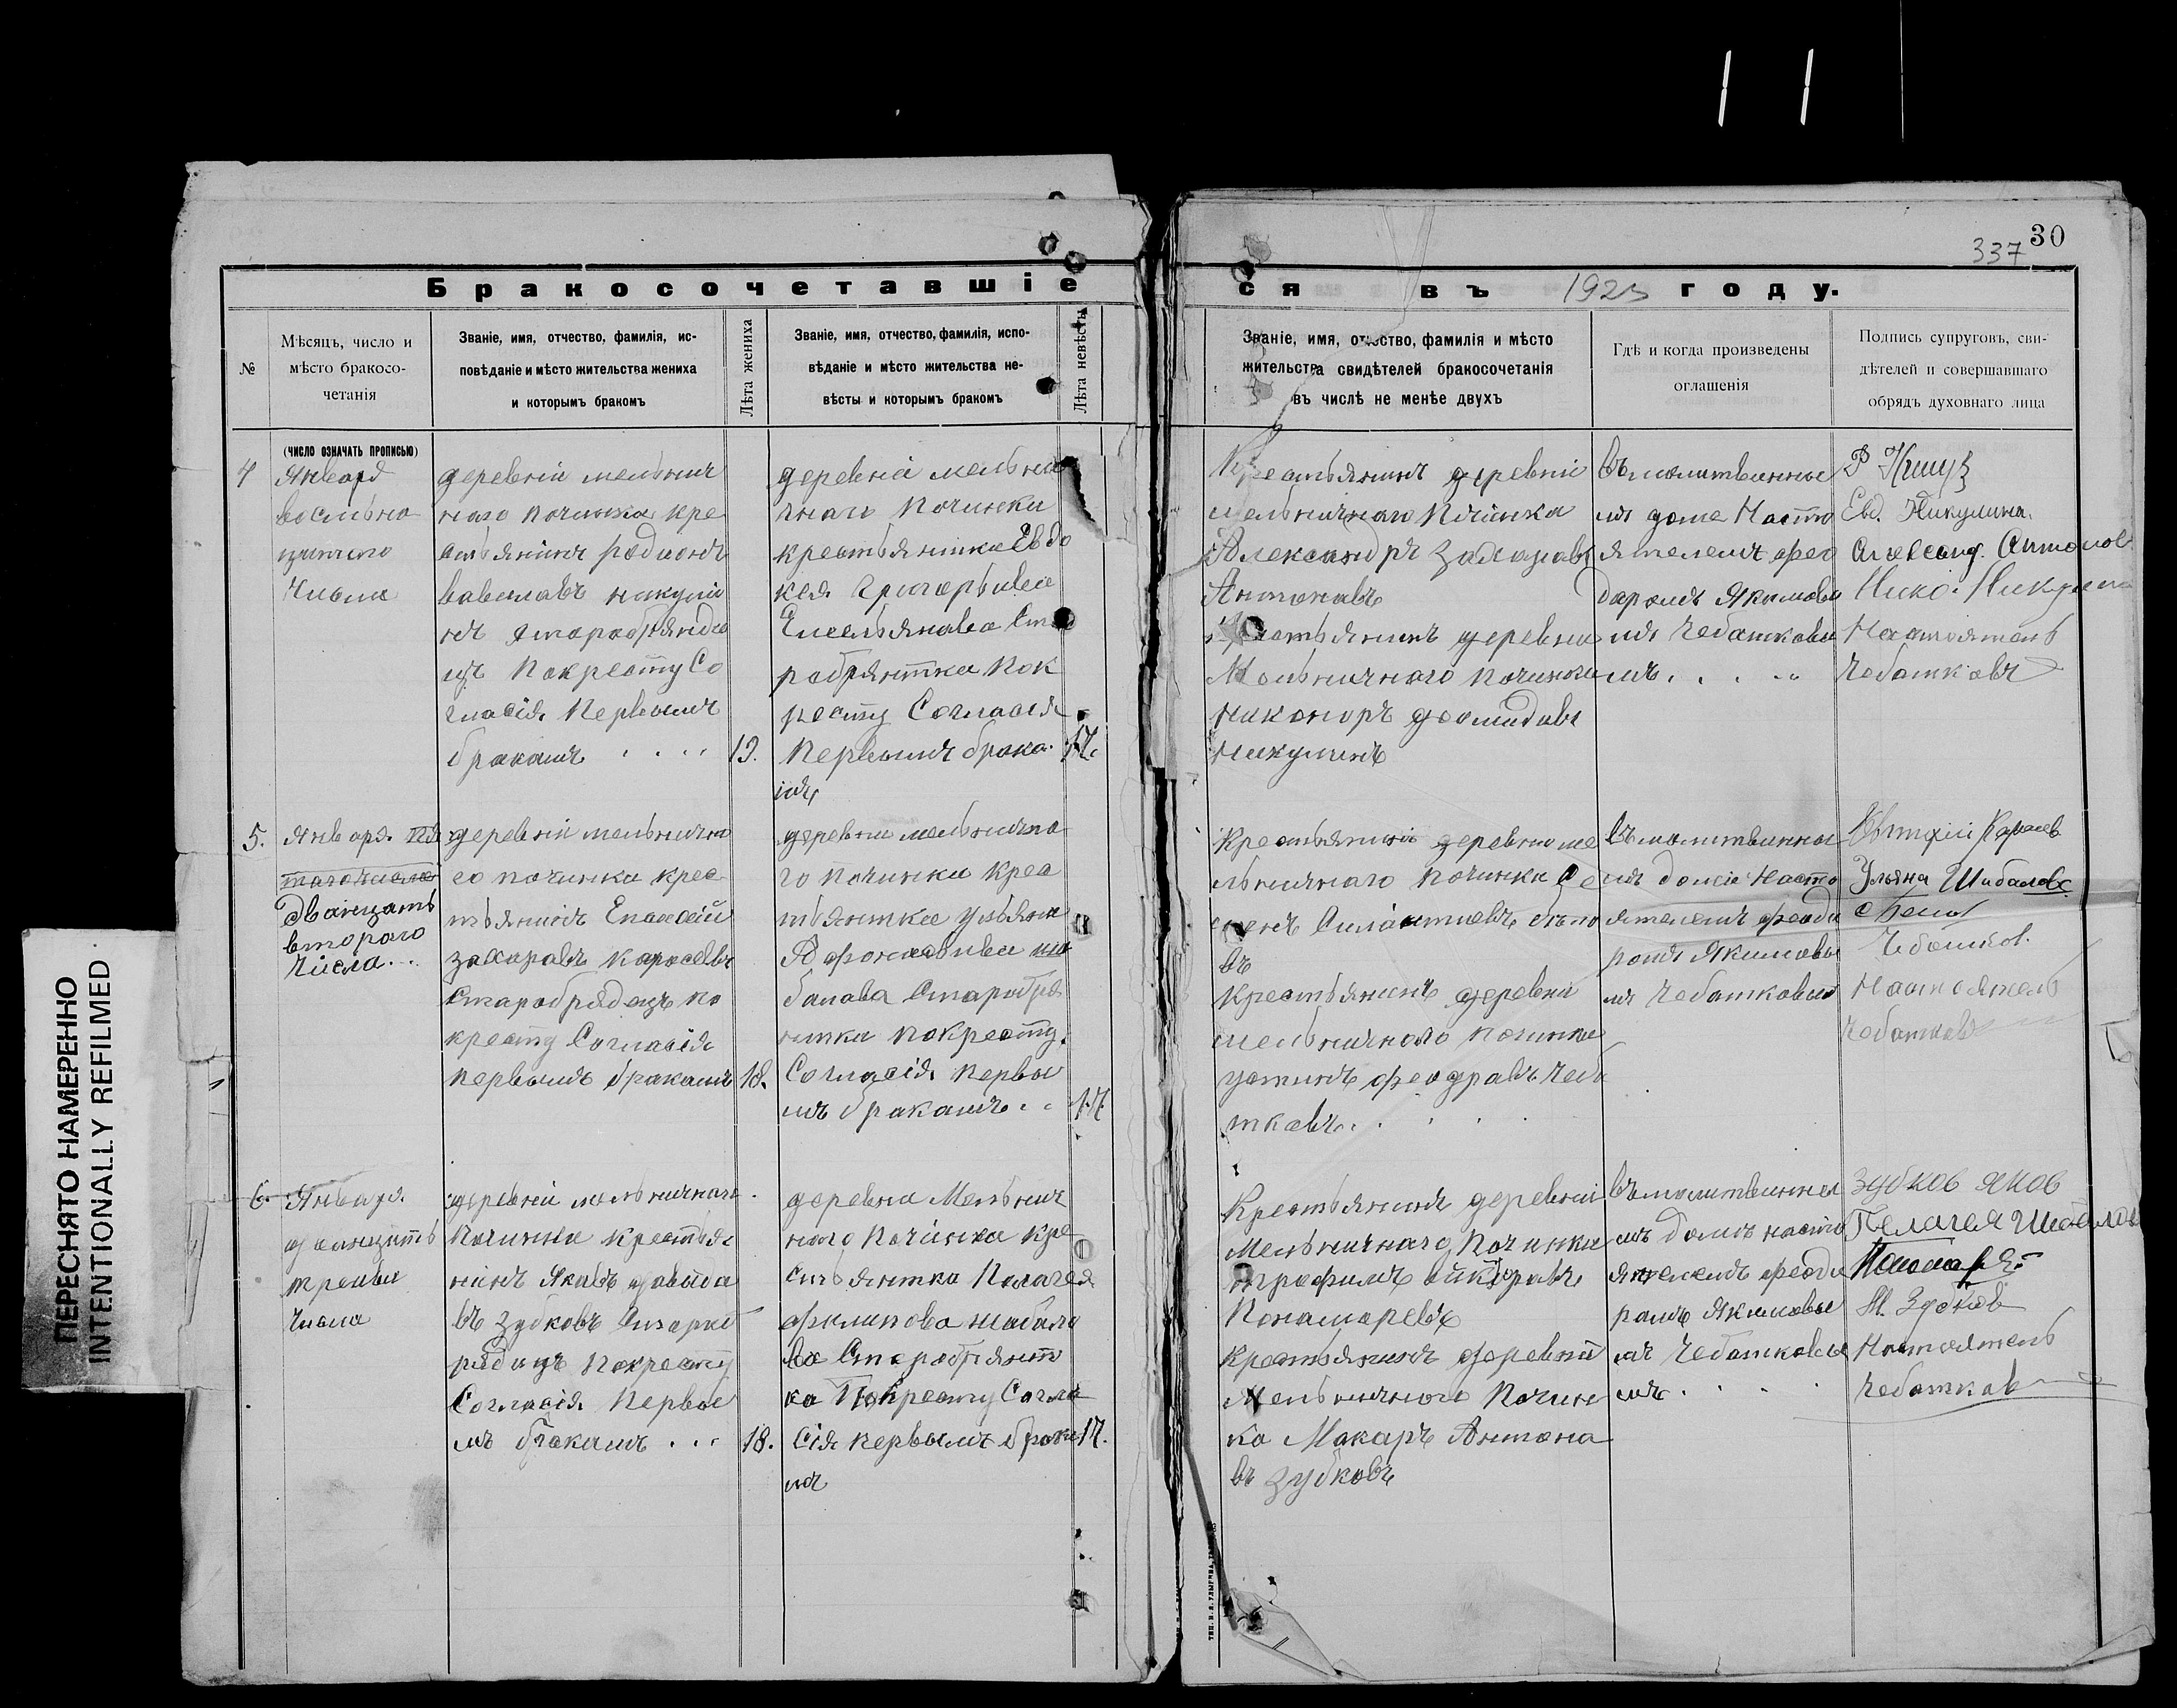 30
337
Бракосочетавшіе
ся въ 1923 году.
№
Мѣсяцъ, число и
мѣсто бракосо-
четанія
Званіе, имя, отчество, фамилія, ис-
повѣданіе и мѣсто жительства жениха
и которымъ бракомъ
Лѣта жениха
Званіе, имя, отчество, фамилія, испо-
вѣданіе и мѣсто жительства не-
вѣсты и которымъ бракомъ
Лѣта невѣсты
Званіе, имя, отчество, фамилія и мѣсто
жительства свидѣтелей бракосочетанія
въ числѣ не менѣе двухъ
Гдѣ и когда произведены
оглашенія
Подпись супруговъ, сви-
дѣтелей и совершавшаго
обрядъ духовнаго лица
(число означать прописью)
4
Январ
восльна
цатого
Числа
деревніи мельнич
ного починка кре
стьянинъ родионъ
вавиловъ никули
нъ старобрядо
цъ Покресту Со
гласія Первымъ
бракамъ
19.
деревніа мельни
чнаго Починки
крестьянтка Евдо
кея Григорьивеа
Емельянава Ста
робрянтка Пок
ресту Согласія
Первымъ брака
мъ
17.
Крестьянинъ деревніи
мельничнаго Починка
Александръ Захаравъ
Антонавъ
Крестьянинъ деревни
Мельничнаго починка
никоноръ деомидавъ
Никулинъ
въ молитвенно
мъ доме Насто
ятелемъ фео
даромъ Якимовы
мъ Чебатковы
мъ.
Евд. Никулина.
Александ. Антонов
Нико. Никулин
Настоятель
Чебатковъ
5.
Январа
Двацать
второго
Числа...
деревніи мельнично
го починка крес
тьянинъ
захаравъ Каросевъ
Старобрядецъ по
кресту Согласія
первымъ бракамъ
18.
деревни мельнично
го починка Крес
тьянтка ульяна
Афонасьивеа ша
балава Старобря
нтка покресту
Согласія первы
мъ бракамъ
17
Крестьянинъ деревни ме
льничнаго починка Се
менъ Силантиевъ
въ
Крестьянинъ деревни
мельничного починка
устинъ феодравъ Чеба
тковъ.
въ молитвенно
мъ доме Насто
ятелемъ феодо
ромъ Якимовы
мъ Чебатковым
Каросев
Ульяна Шабалова
Чебатков.
Настоятель
Чебатков
6.
Января.
двацать
третьи
Числа
деревніи мельничнаго
починка крестья
нинъ Якавъ давыда
въ Зубковъ Старооб
рядецъ покресту
Согласія Первы
мъ бракамъ
18.
деревна Мельнич
ного Починка Кре
стьянтка Палагея
филипова шабало
ва Старобрянт
ка Покресту Согла
сія первымъ брака
мъ
17.
Крестьянинъ деревніи
Мельничнаго Починка
трофимъ викторавъ
Понамаревъ
крестьянинъ деревни
Мельничного Почин
ка Макаръ Антона
въ Зубковъ
въ молитвенно
мъ домъ насто
ятелемъ феодо
рамъ Якимовы
мъ Чебатковы
мъ.
Зубков Яков
Пелагея Шабалова
Пономарев
М. Зубков
Настоятель
Чебатков
ПЕРЕСНЯТО НАМЕРЕННО
INTENTIONALLY REFILMED